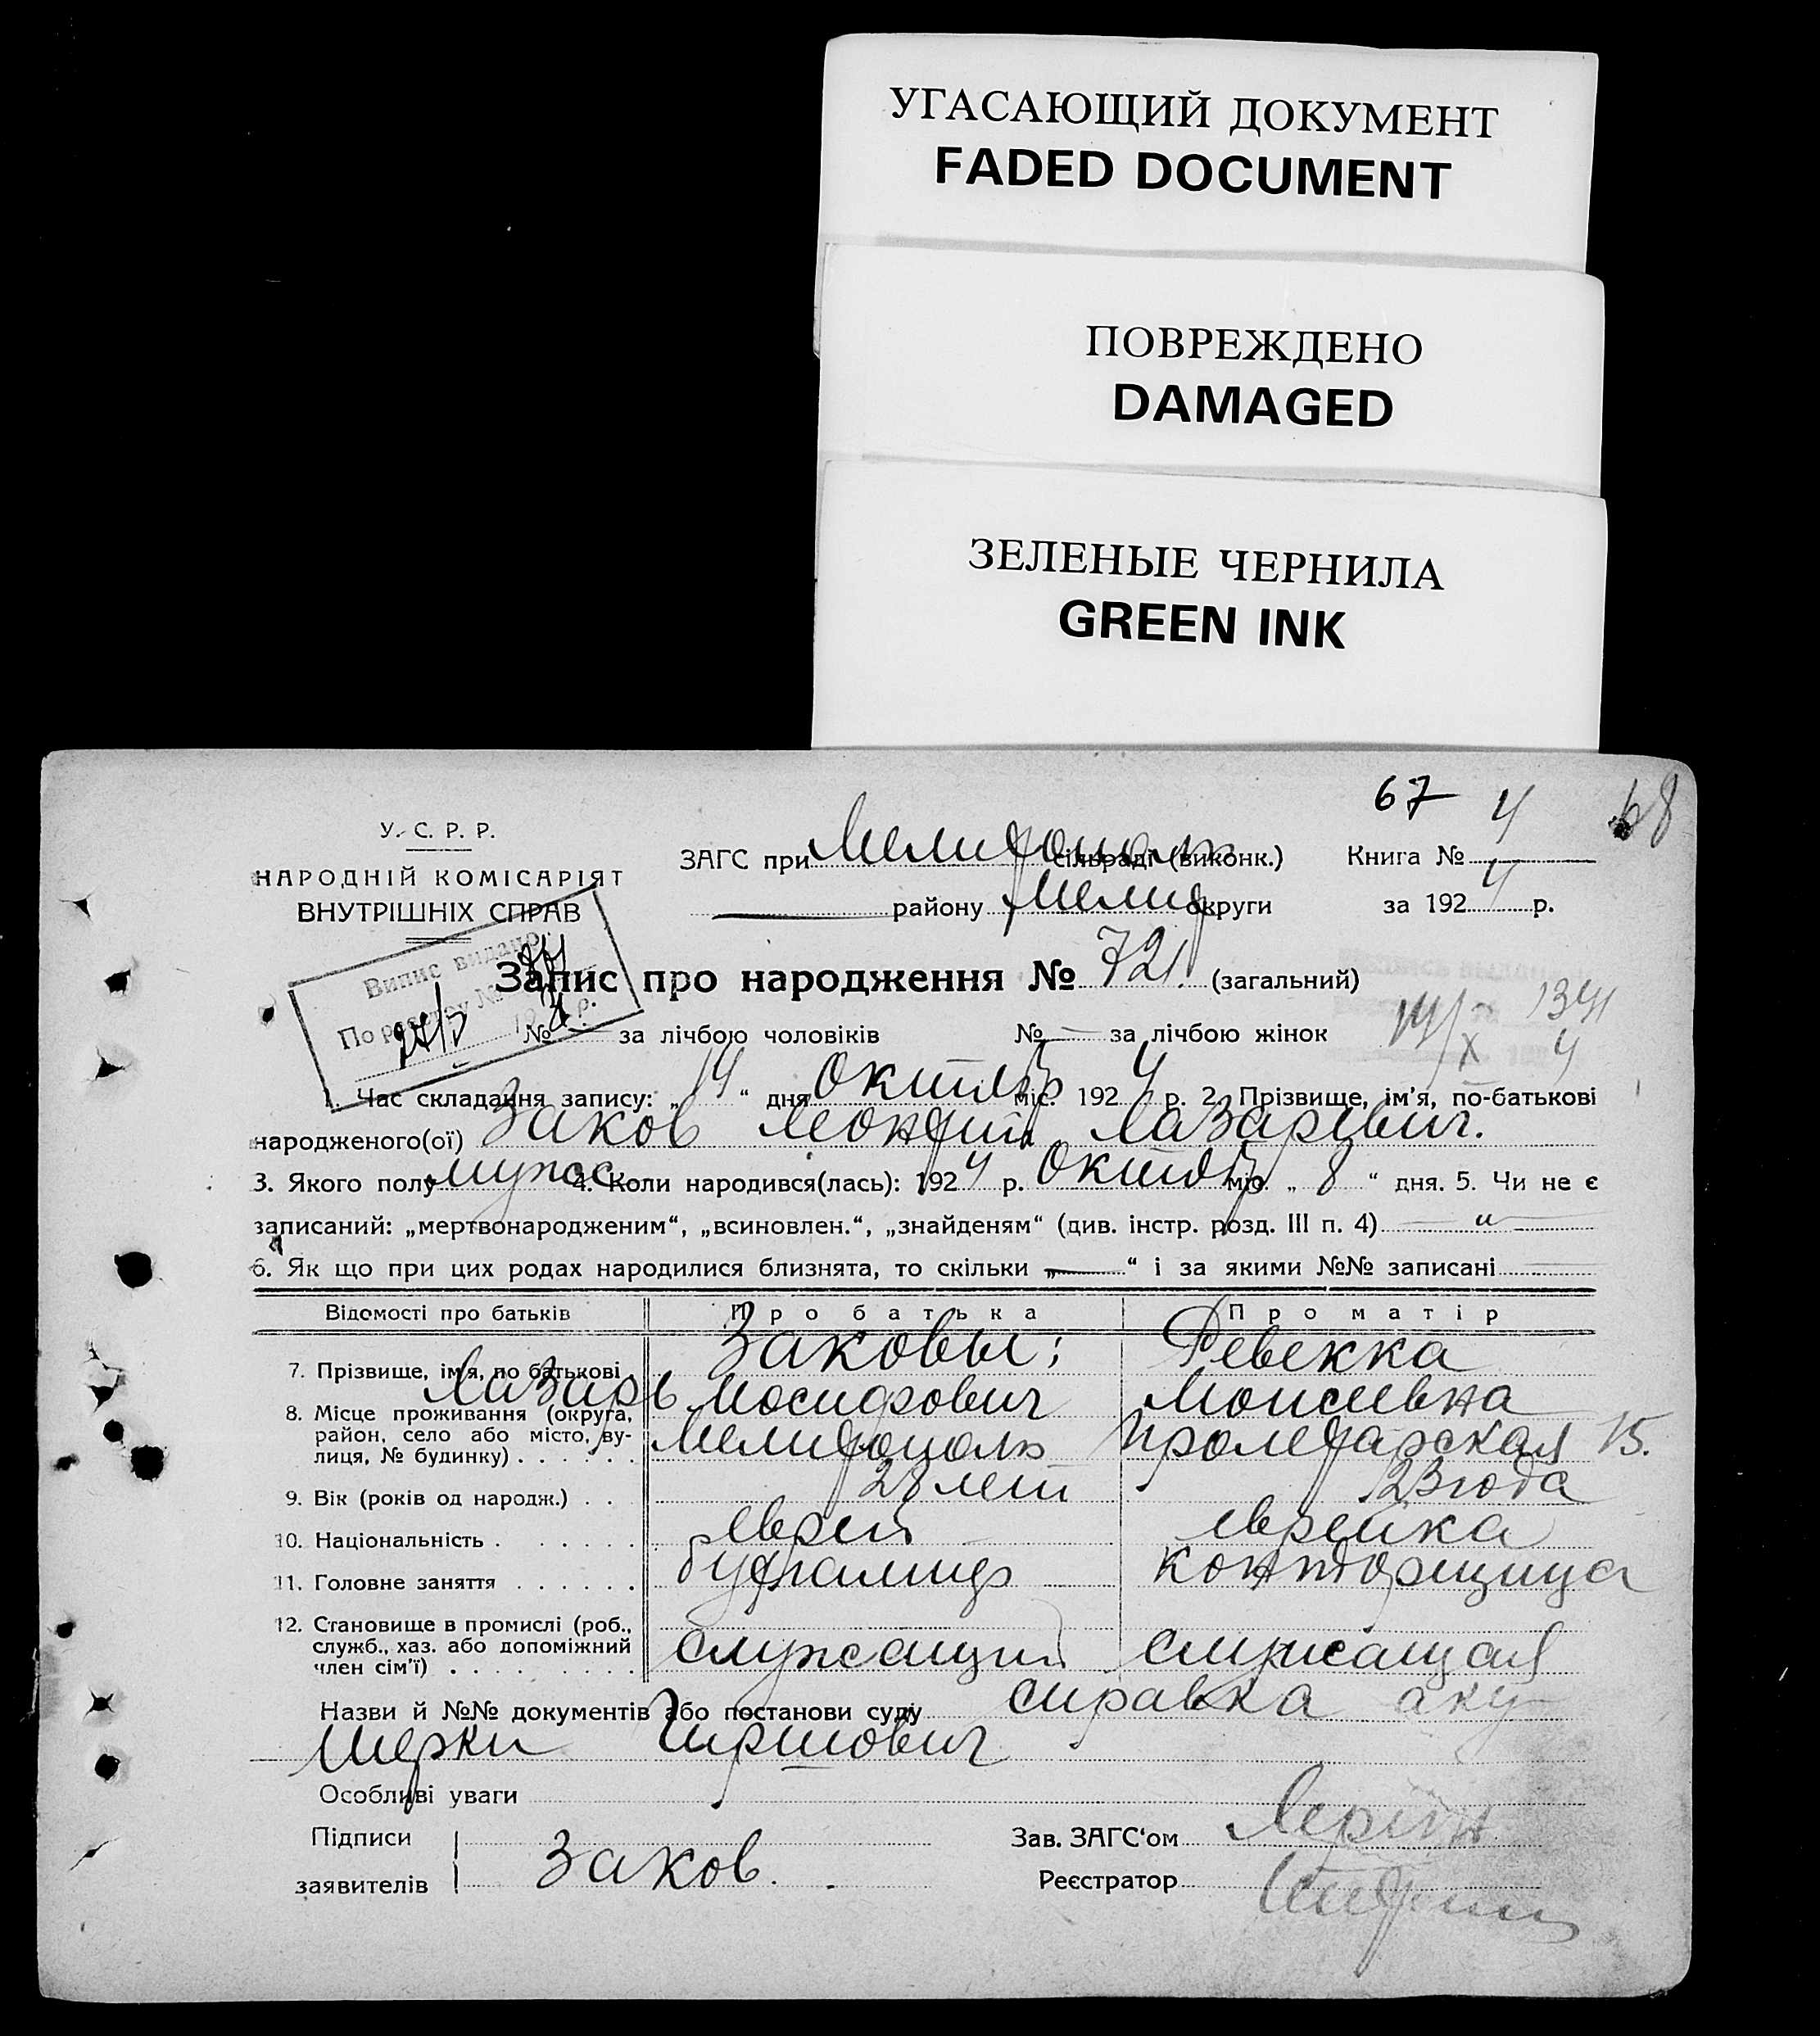 УГАСАЮЩИЙ ДОКУМЕНТ
FADED DOCUMENT
ПОВРЕЖДЕНО
DAMAGED
ЗЕЛЕНЫЕ ЧЕРНИЛА
GREEN INK
67 4 68
У. С. Р. Р.
НАРОДНІЙ КОМІСАРІЯТ
ВНУТРІШНІХ СПРАВ
ЗАГС при Мелитополь сільраді (виконк.) Книга №
району Мелит округи за 1924 р.
Випис видано
По реєстру №
Запис про народження № 721. (загальний)
№ — за лічбою чоловіків № — за лічбою жінок
1. Час складання запису: „14“ дня Октябр міс. 1924 р. 2. Прізвище, ім'я, по-батькові
народженого(ої) Заков Леонтий Лазаревич.
3. Якого полу мужс. 4. Коли народився(лась): 1924 р. Октябр міс. „8“ дня. 5. Чи не є
записаний: „мертвонародженим“, „всиновлен.“, „знайденям“ (див. інстр. розд. III п. 4) — „ —
6. Як що при цих родах народилися близнята, то скільки „—“ і за якими №№ записані
Відомості про батьків Про батька Про матір
7. Прізвище, ім'я, по батькові Заковы: Ревекка
Лазарь Иосифович Моисеевна
8. Місце проживання (округа, район, село або місто, вулиця, № будинку) Мелитополь Пролетарская 15.
9. Вік (років од народж.) 28 лет 23 года
10. Національність еврей еврейка
11. Головне заняття бухгалтер конторщица
12. Становище в промислі (роб., служб., хаз. або допоміжний член сім'ї) служащий служащая
Назви й №№ документів або постанови суду справка аку
шерки Гиршович
Особливі уваги
Підписи
заявителів Заков.
Зав. ЗАГС'ом
Реєстратор